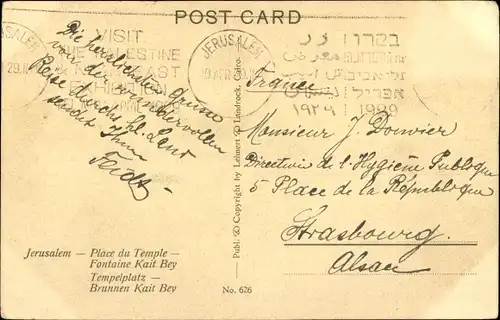 POST CARD
JERUSALEM
VISIT
THE PALESTINE
& NEAR EAST
EXHIBITION
JERUSALEM
בקרו
זورו
תל אביב
אפריל
1929 ١٩٢٩
Die herzlichsten Grüsse
von der wundervollen
Reise durchs hl. Land
sendet Ihnen
France
Monsieur J.
Directeur de l'Hygiène Publique
5 Place de la République
Strasbourg.
Alsace
Publ. & Copyright by Lehnert & Landrock, Cairo.
Jerusalem — Place du Temple —
Fontaine Kait Bey
Tempelplatz —
Brunnen Kait Bey
No. 626